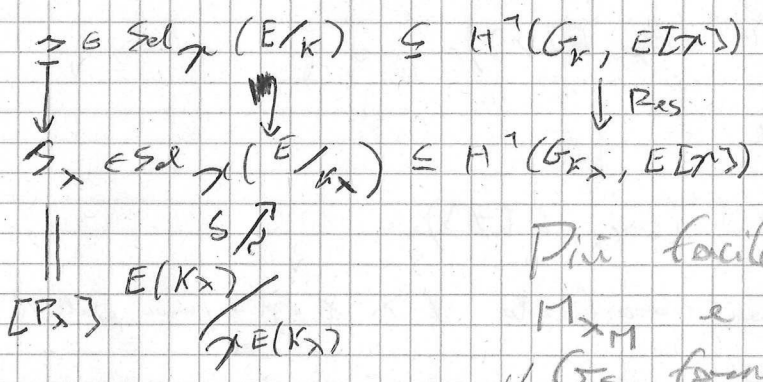 s ∈ Sel_n (E/K) ⊆ H¹(G_K, E[n])
Res
s_λ ∈ Sel_n (E/K_λ) ⊆ H¹(G_{K_λ}, E[n])
δ
[P_λ] E(K_λ)/nE(K_λ)
Più facile
M_{λ_M} e